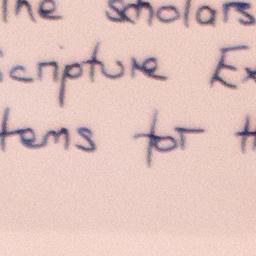 the scholars
scripture Ex
tems for t